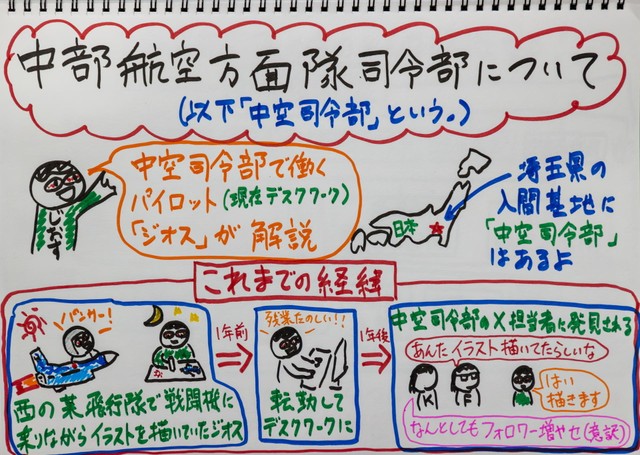 中部航空方面隊司令部について
(以下「中空司令部」という。)
中空司令部で働く
パイロット(現在デスクワーク)
「ジオス」が解説
じおす
日本
埼玉県の
入間基地に
「中空司令部」
はあるよ
これまでの経緯
パンサー!
西の某飛行隊で戦闘機に
乗りながらイラストを描いていたジオス
1年前
残業たのしい!!
転勤して
デスクワークに
1年後
中空司令部のX担当者に発見される
あんたイラスト描いてたらしいな
K
F
はい
描きます
なんとしてもフォロワー増やせ(意訳)